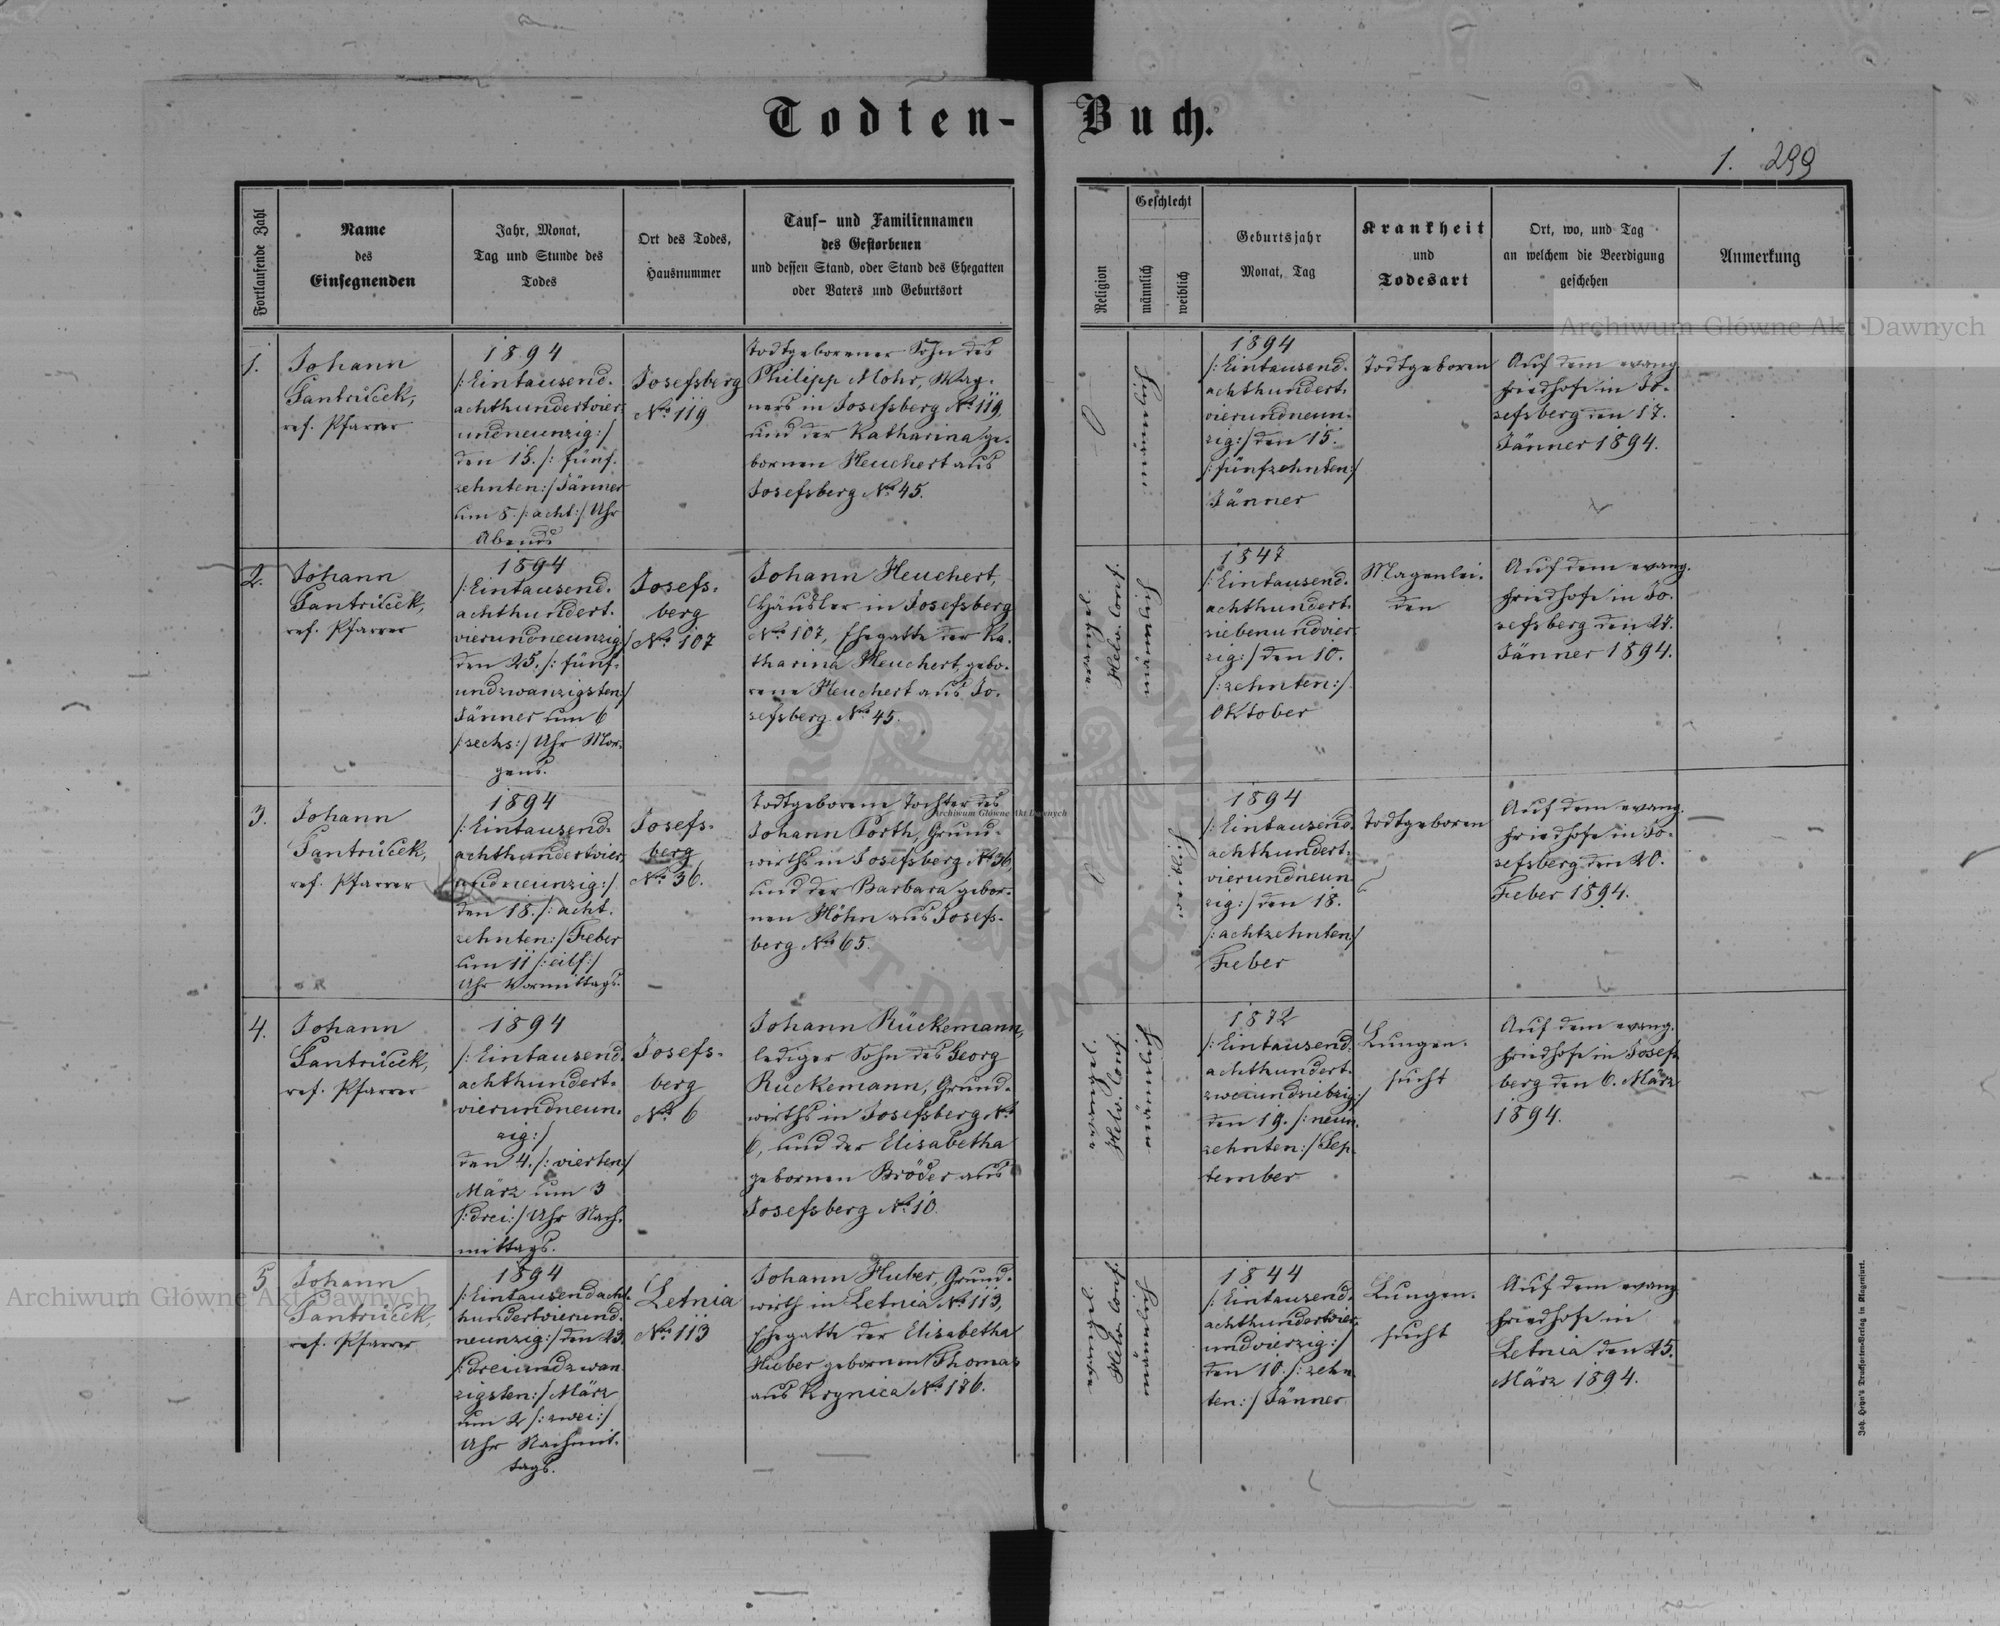 Todten-Buch.
1. 299
Fortlaufende Zahl
Name
des
Einsegnenden
Jahr, Monat,
Tag und Stunde des
Todes
Ort des Todes,
Hausnummer
Tauf- und Familiennamen
des Gestorbenen
und dessen Stand, oder Stand des Ehegatten
oder Vaters und Geburtsort
Religion
Geschlecht
männlich
weiblich
Geburtsjahr
Monat, Tag
Krankheit
und
Todesart
Ort, wo, und Tag
an welchem die Beerdigung
geschehen
Anmerkung
Archiwum Główne Akt Dawnych
1.
Johann
Jantrůček,
ref. Pfarrer
1894
/:Eintausend-
achthundertvier-
undneunzig:/
den 15. /: fünf-
zehnten:/ Jänner
um 8 /: acht:/ Uhr
Abends
Josefsberg
No 119
Todtgeborener Sohn des
Philipp Mohr, Wag-
ners in Josefsberg No 119,
und der Katharina ge-
bornen Heuchert aus
Josefsberg No 45.
männlich
1894
/:Eintausend-
achthundert-
vierundneun-
zig:/ den 15.
/:fünfzehnten:/
Jänner
Todtgeboren
Auf dem evang.
Friedhofe in Jo-
sefsberg den 17.
Jänner 1894.
2.
Johann
Jantrůček,
ref. Pfarrer
1894
/:Eintausend-
achthundert-
vierundneunzig:/
den 25. /: fünf-
undzwanzigsten:/
Jänner um 6
/:sechs:/ Uhr Mor-
gens.
Josefs-
berg
No 107
Johann Heuchert,
Häusler in Josefsberg
No 107, Ehegatte der Ka-
tharina Heuchert, gebo-
rene Heuchert aus Jo-
sefsberg No 45.
evangel.
Helv. Conf.
männlich
1847
/:Eintausend-
achthundert-
siebenundvier-
zig:/ den 10.
/:zehnten:/
Oktober
Magenlei-
den
Auf dem evang.
Friedhofe in Jo-
sefsberg den 27.
Jänner 1894.
3.
Johann
Jantrůček,
ref. Pfarrer
1894
/:Eintausend-
achthundertvier-
undneunzig:/
den 18. /: acht-
zehnten:/ Feber
um 11 /:eilf:/
Uhr Vormittags.
Josefs-
berg
No 36.
Todtgeborene Tochter des
Johann Porth, Grund-
wirths in Josefsberg No 36,
und der Barbara gebor-
nen Höhn aus Josefs-
berg No 65.
weiblich
1894
/:Eintausend-
achthundert-
vierundneun-
zig:/ den 18.
/:achtzehnten:/
Feber
Todtgeboren
Auf dem evang.
Friedhofe in Jo-
sefsberg den 20.
Feber 1894.
4.
Johann
Jantrůček,
ref. Pfarrer
1894
/:Eintausend-
achthundert-
vierundneun-
zig:/
den 4. /: vierten:/
März um 3
/:drei:/ Uhr Nach-
mittags.
Josefs-
berg
No 6
Johann Rückemann,
lediger Sohn des Georg
Rückemann, Grund-
wirths in Josefsberg No
6, und der Elisabetha
gebornen Bröder aus
Josefsberg No 10.
evangel.
Helv. Conf.
männlich
1872
/:Eintausend-
achthundert-
zweiundsiebzig:/
den 19. /:neun-
zehnten:/ Sep-
tember
Lungen-
sucht
Auf dem evang.
Friedhofe in Josefs-
berg den 6. März
1894.
5
Johann
Jantrůček,
ref. Pfarrer
1894
/:Eintausendacht-
hundertvierund-
neunzig:/ den 23.
/:dreiundzwan-
zigsten:/ März
um 2 /:zwei:/
Uhr Nachmit-
tags.
Letnia
No 113
Johann Huber, Grund-
wirth in Letnia No 113,
Ehegatte der Elisabetha
Huber gebornen Thomas
aus Krynica No 176.
evangel.
Helv. Conf.
männlich
1844
/:Eintausend-
achthundertvier-
undvierzig:/
den 10. /:zehn-
ten:/ Jänner
Lungen-
sucht
Auf dem evang.
Friedhofe in
Letnia den 25.
März 1894.
Archiwum Główne Akt Dawnych
Archiwum Główne Akt Dawnych
Joh. Heyn's Drucksortenverlag in Klagenfurt.